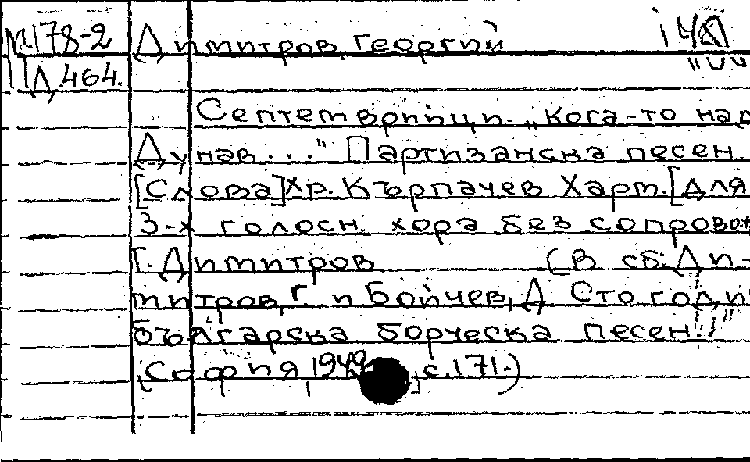 М178-2 Димитров, Георгий
Д 464.
Септемврийци. „Кога-то над
Дунав..." Партизанска песен.
[Слова] Хр. Кърпачев Харт. [Для
3-х голосн. хора без сопровож
Г. Димитров (В сб. Ди-
митров, Г. и Бойчев, Д. Сто годи
българска борческа песен.
[София, 1949], с. 171.)